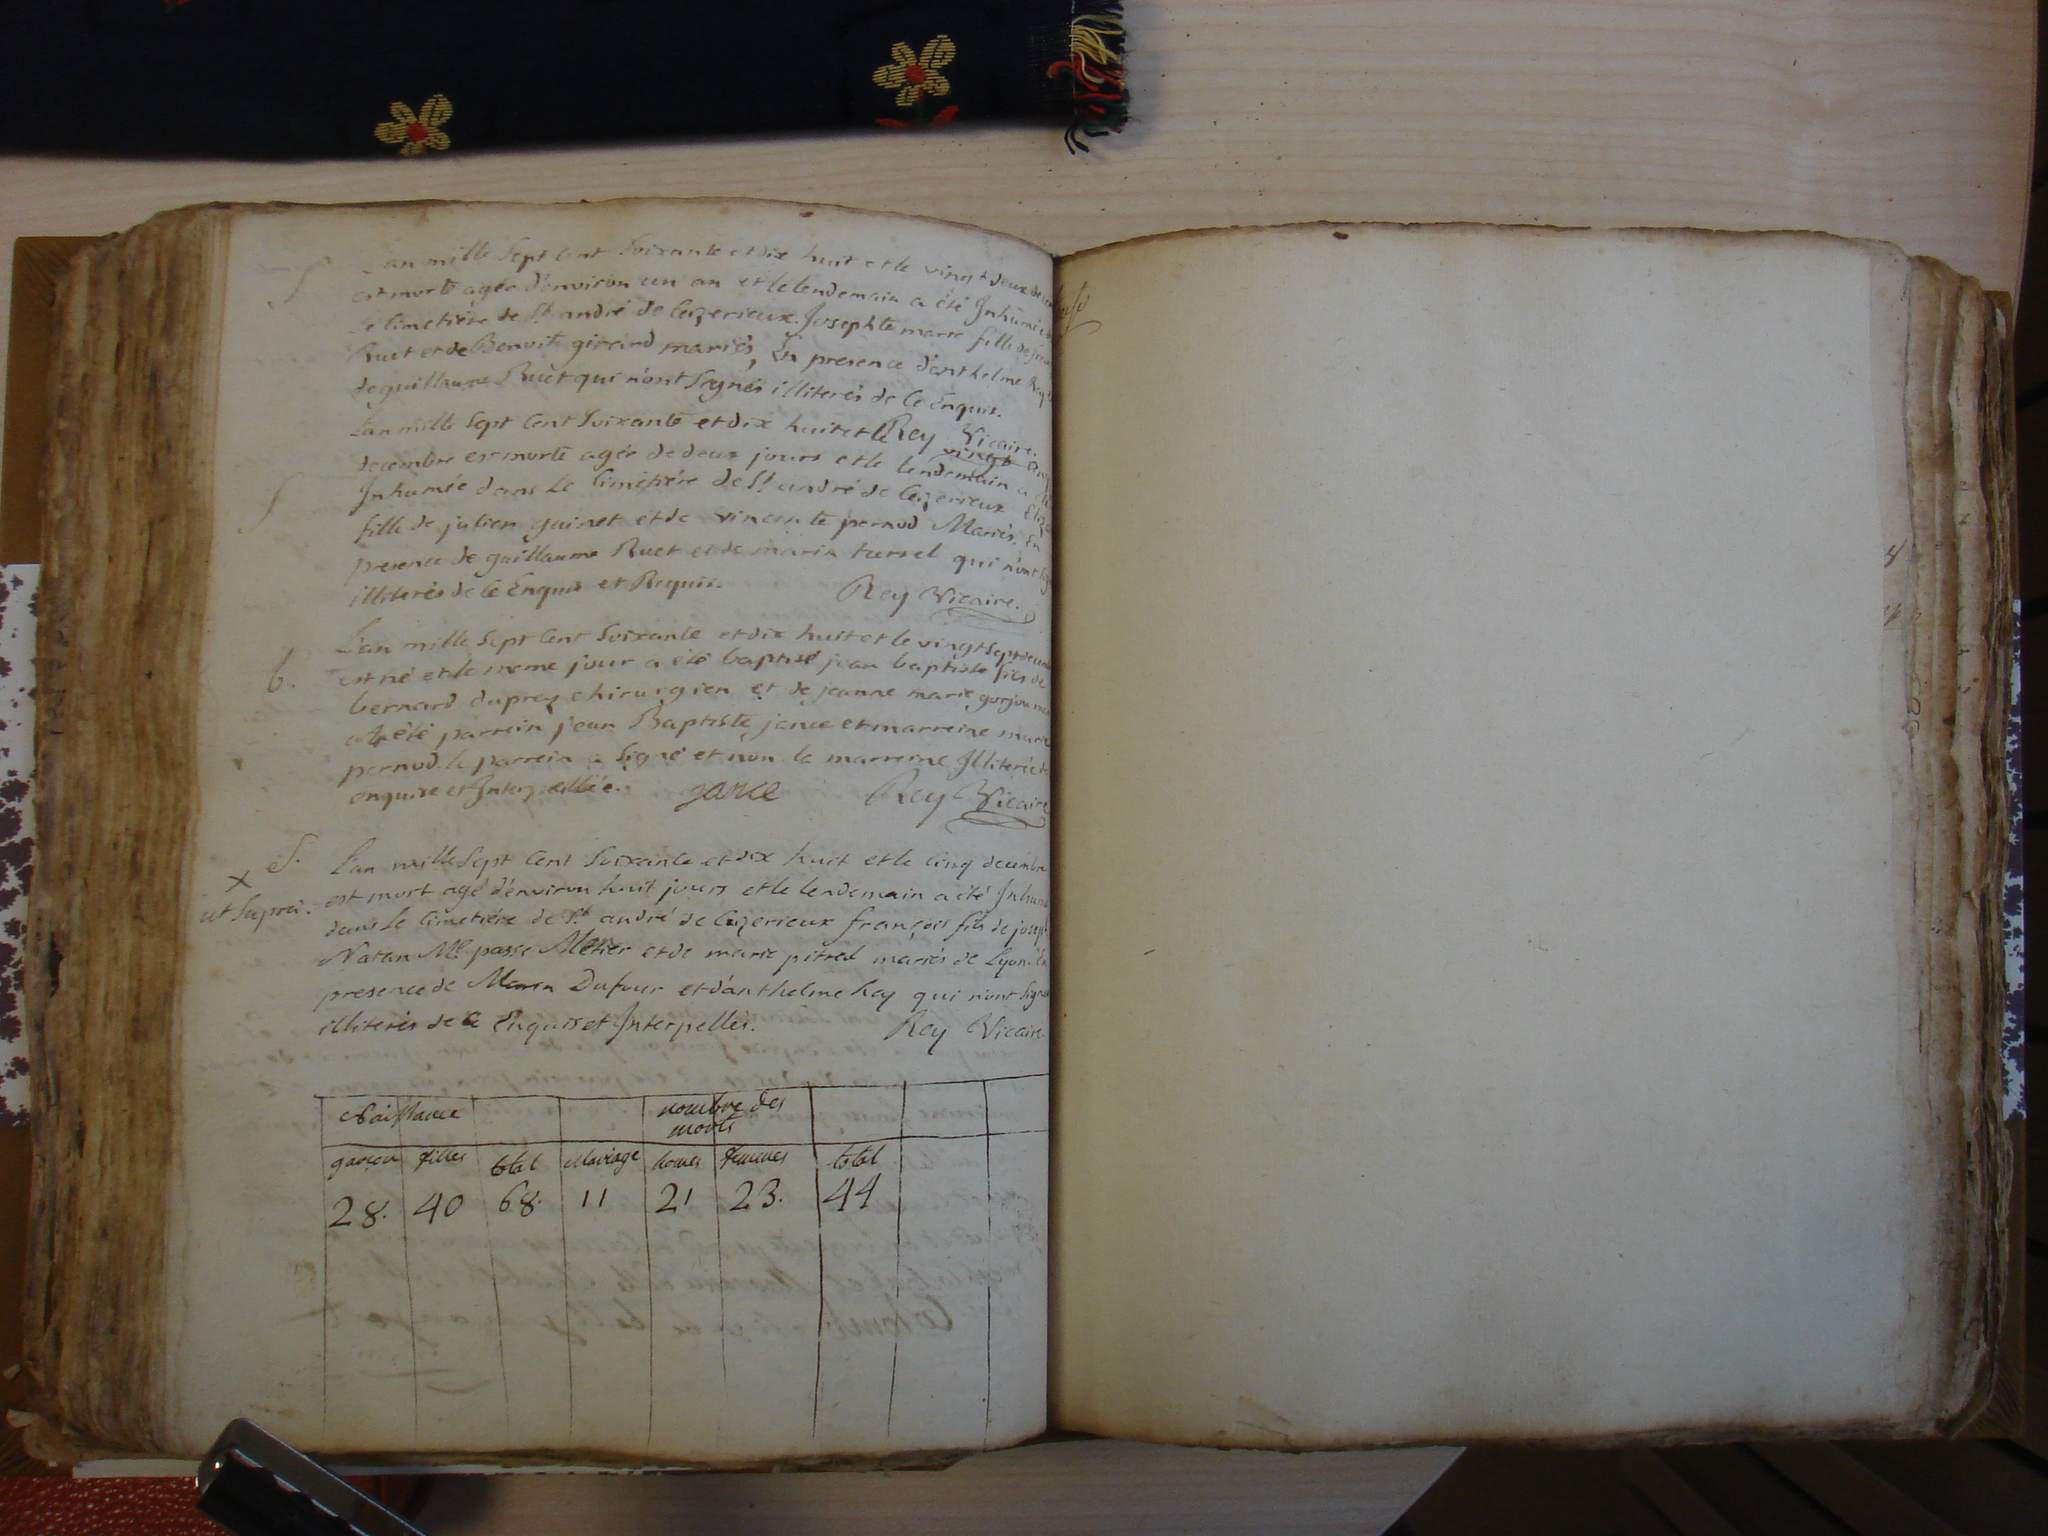 S
L'an mille Sept Cent Soixante et dix huit et le vingt deux
est morte agée d'environ un an et le lendemain a été Inhumée
Le Cimetiére de St andré de Ceizerieux. Josephte marie fille de
Ruet et de Benoite girard mariés, En presence d'anthelme Rey
de guillaume Ruet qui n'ont Signés illiterés de Ce Enquis.
Rey Vicaire.
S
L'an mille Sept Cent Soixante et dix huit et le vingt
decembre est morte agée de deux jours et le lendemain a
Inhumée dans Le Cimetiére de St andré de Ceizerieux
fille de julien guinet et de vincente pernod Mariés. En
presence de guillaume Ruet et de marin turrel qui n'ont
illiterés de Ce Enquis et Requis. Rey Vicaire.
b.
L'an mille Sept Cent Soixante et dix huit et le vingt Sept
est né et le meme jour a été baptisé jean baptiste fils de
bernard duprez chirurgien et de jeanne marie gorjou
a été parrein jean Baptiste jance et marreine marie
pernod. le parrein a Signé et non la marreine Illiterée
enquise et Interpellée. jance Rey Vicaire
S.
x
ut Supra.
L'an mille Sept Cent Soixante et dix huit et le Cinq decembre
est mort agé d'environ huit jours et le lendemain a été
dans Le Cimetiére de St andré de Ceizerieux françois fils de
Natan Me passe Metier et de marie pitrel mariés de Lyon.
presence de Marin Dufour et d'anthelme Rey qui n'ont
illiterés de Ce Enquis et Interpellés. Rey Vicaire
Naissance nombre des
morts
garçon filles total Mariage homes femmes total
28. 40 68. 11 21 23. 44